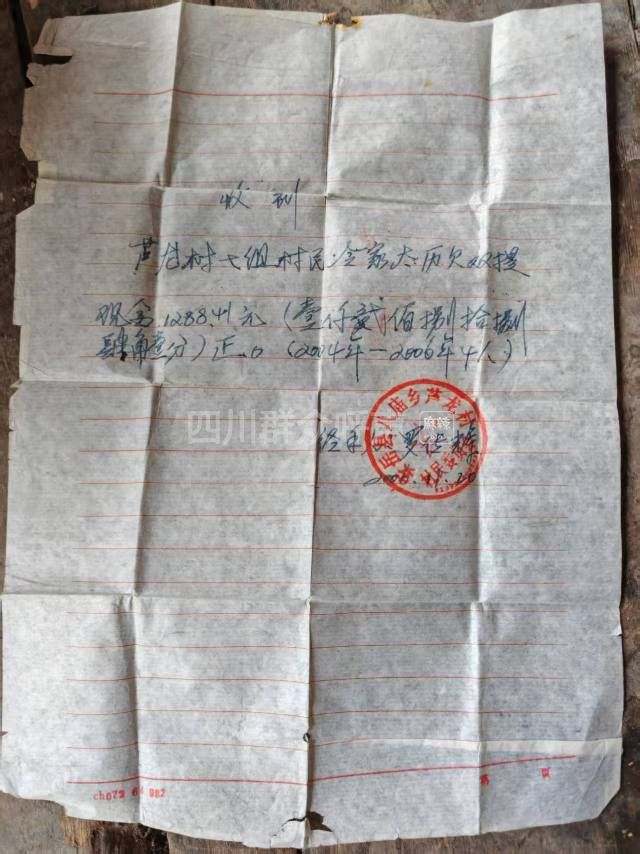 收到
芦龙村七组村民冷家太历欠双提
现金1288.41元（壹仟贰佰捌拾捌
肆角壹分）正。（2004年—2006年4人）
四川群众呼
麻辣
岳县八庙乡芦龙村
村民委
经手人：罗
20
ch672 6 982
第 页